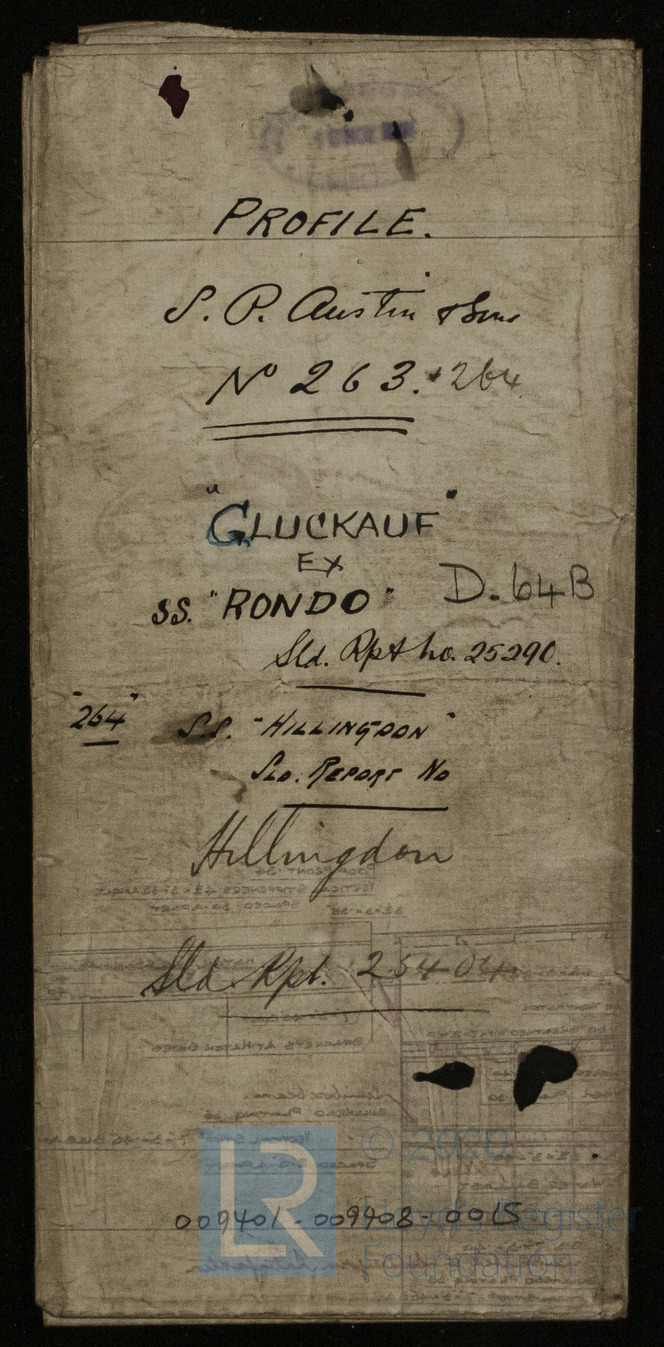 PROFILE.
S. P. Austin & Sons
No 263. & 264.
"GLUCKAUF"
EX
SS. "RONDO"
D. 64B
Sld. Rpt no. 25290.
"264" S.S. "HILLINGDON"
SLD. REPORT No
Hillingdon
Sld Rpt. 25404.
© 2020
LR
Lloyd's Register
Foundation
009401-009908-0015